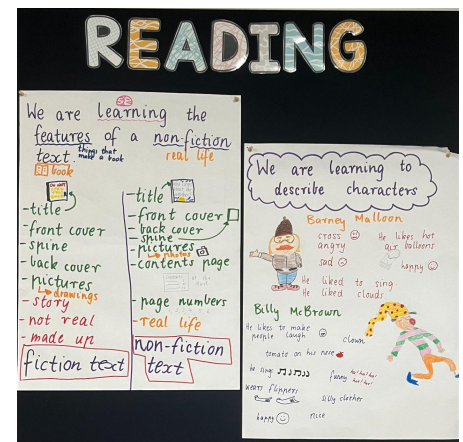 READING
SE
We are learning the
features of a non-fiction
text things that
make a book
real life
book
-title
-front cover
-spine
-back cover
-pictures
drawings
-story
-not real
-made up
fiction text
-title
-front cover
-back cover
-spine
-pictures
photos
-contents page
-page numbers
-real life
non-fiction
text
We are learning to
describe characters
Barney Malloon
cross
angry
sad
He likes hot
air balloons
happy
He liked to sing
He liked clouds
Billy McBrown
He likes to make
people laugh
clown
tomato on his nose
he sings
funny ha! ha! ha!
ha! ha!
wears flippers
silly clothes
happy
nice